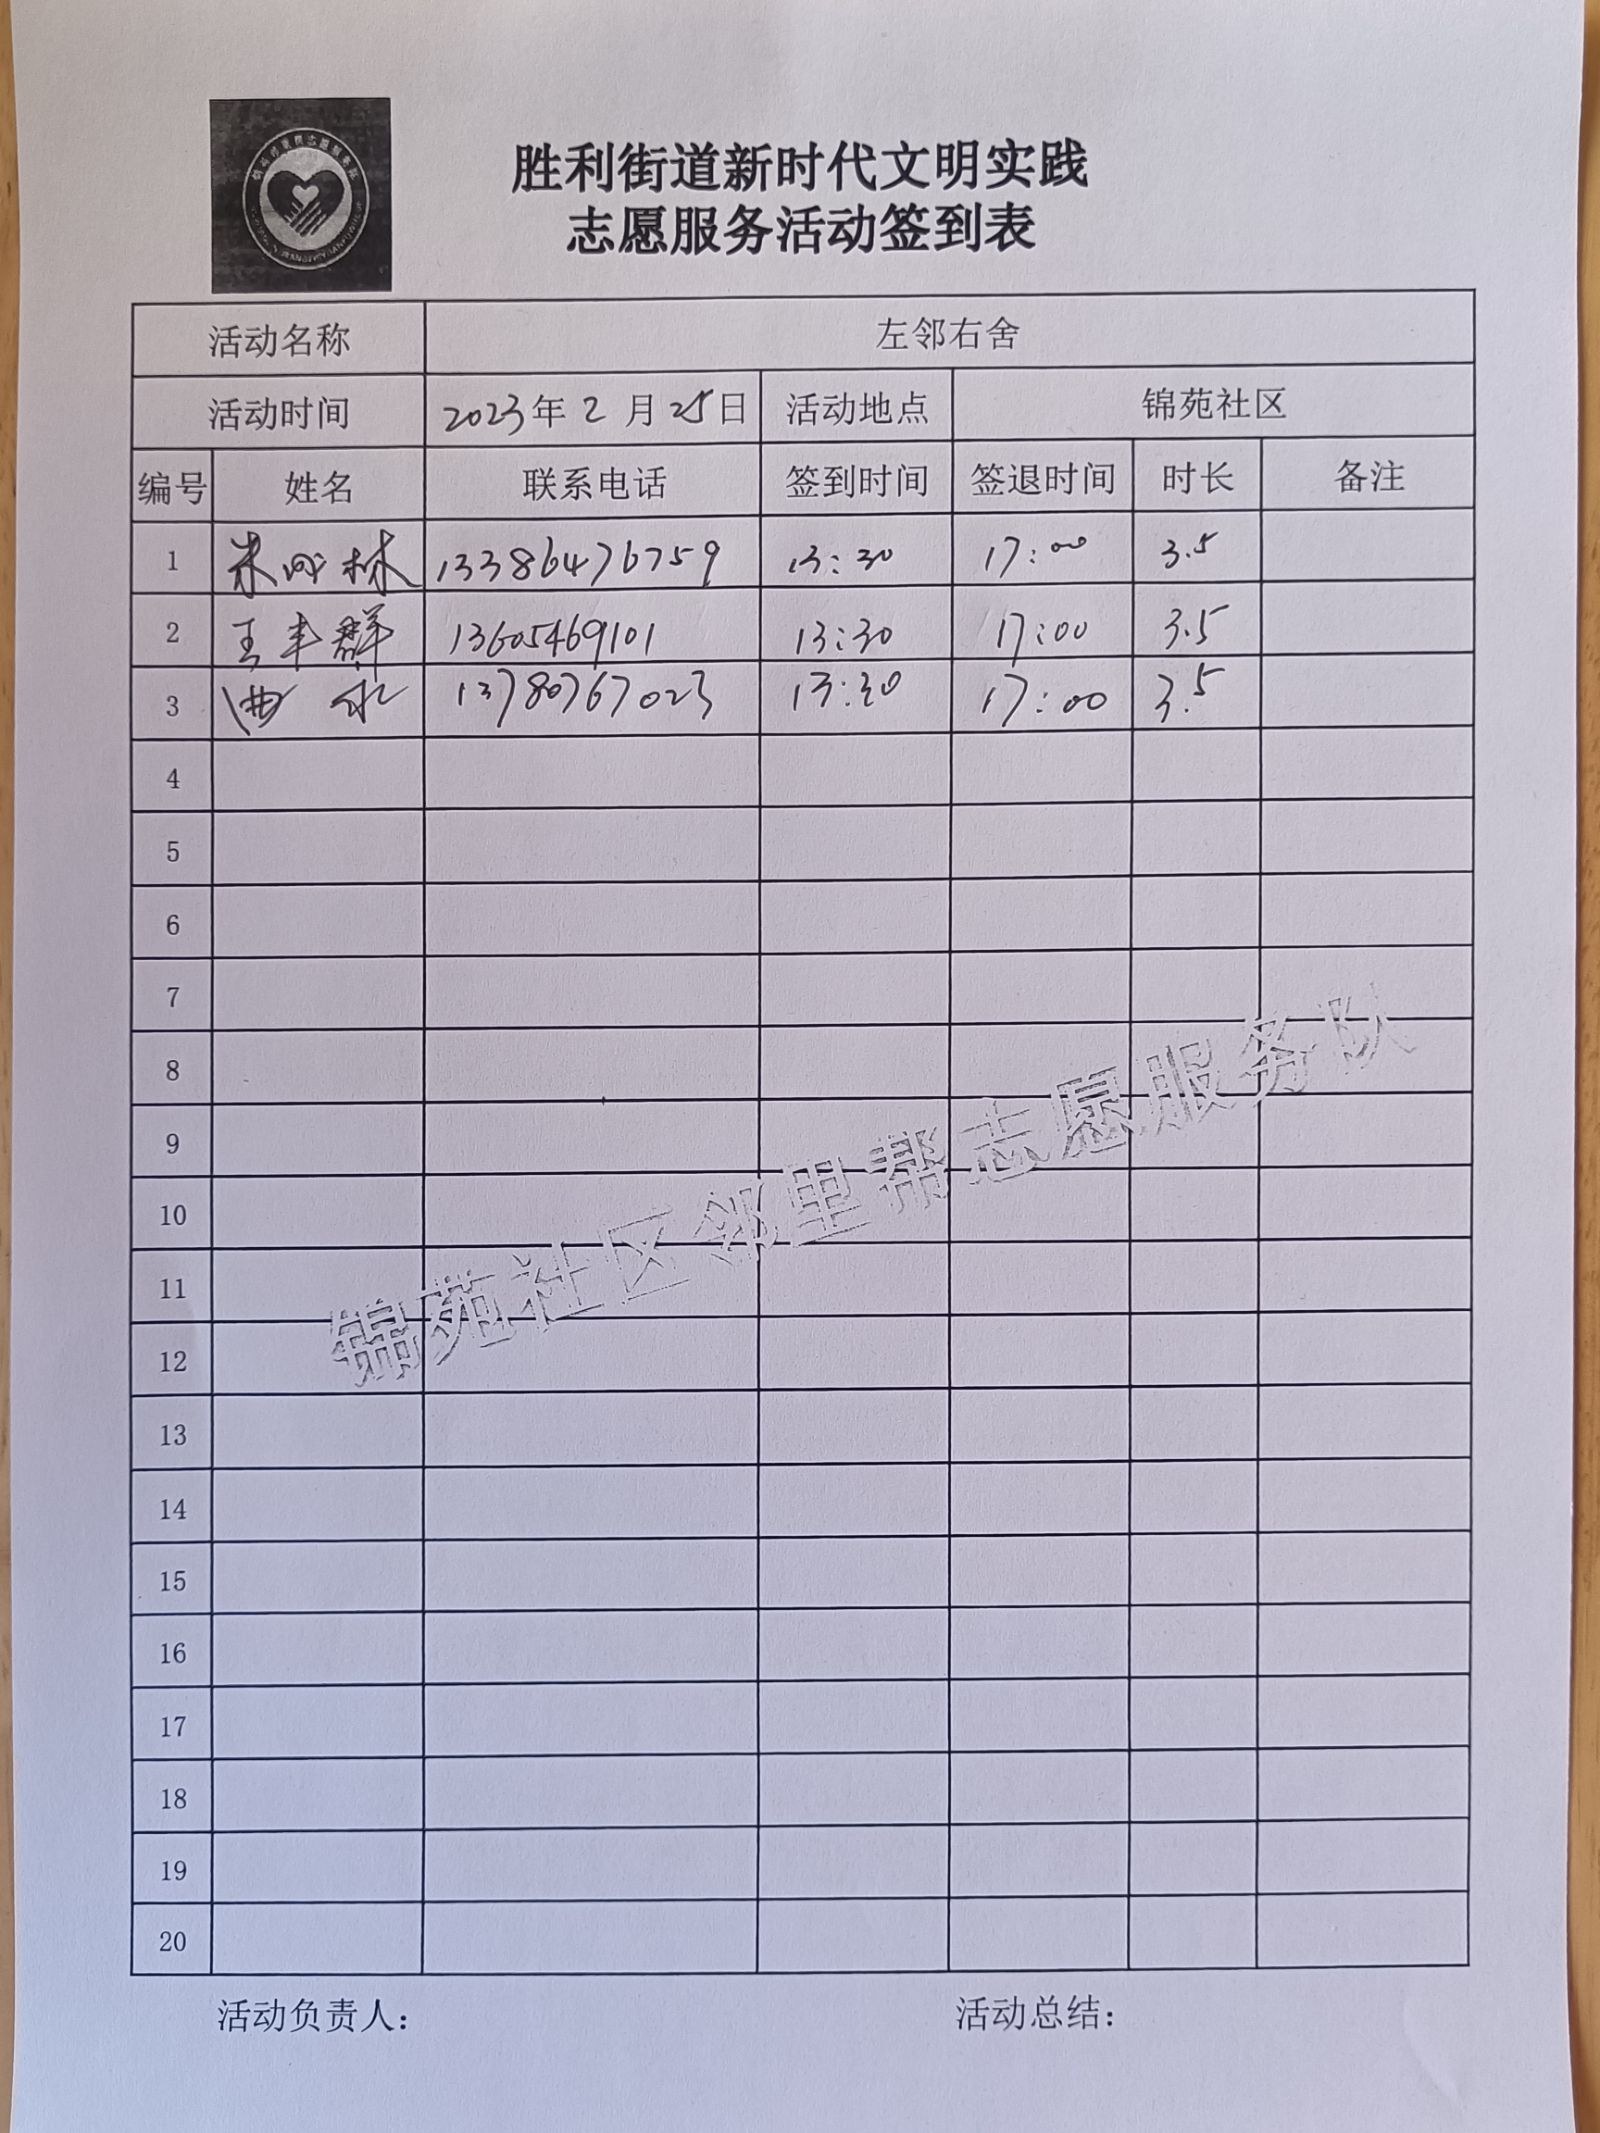 胜利街道新时代文明实践
志愿服务活动签到表
活动名称 左邻右舍
活动时间 2023年2月25日 活动地点 锦苑社区
编号 姓名 联系电话 签到时间 签退时间 时长 备注
1 林 13386476759 13:30 17:00 3.5
2 王丰群 13605469101 13:30 17:00 3.5
3 曲 13780767023 13:30 17:00 3.5
4
5
6
7
8
9
10
11
12
13
14
15
16
17
18
19
20
锦苑社区邻里帮志愿服务队
活动负责人: 活动总结: